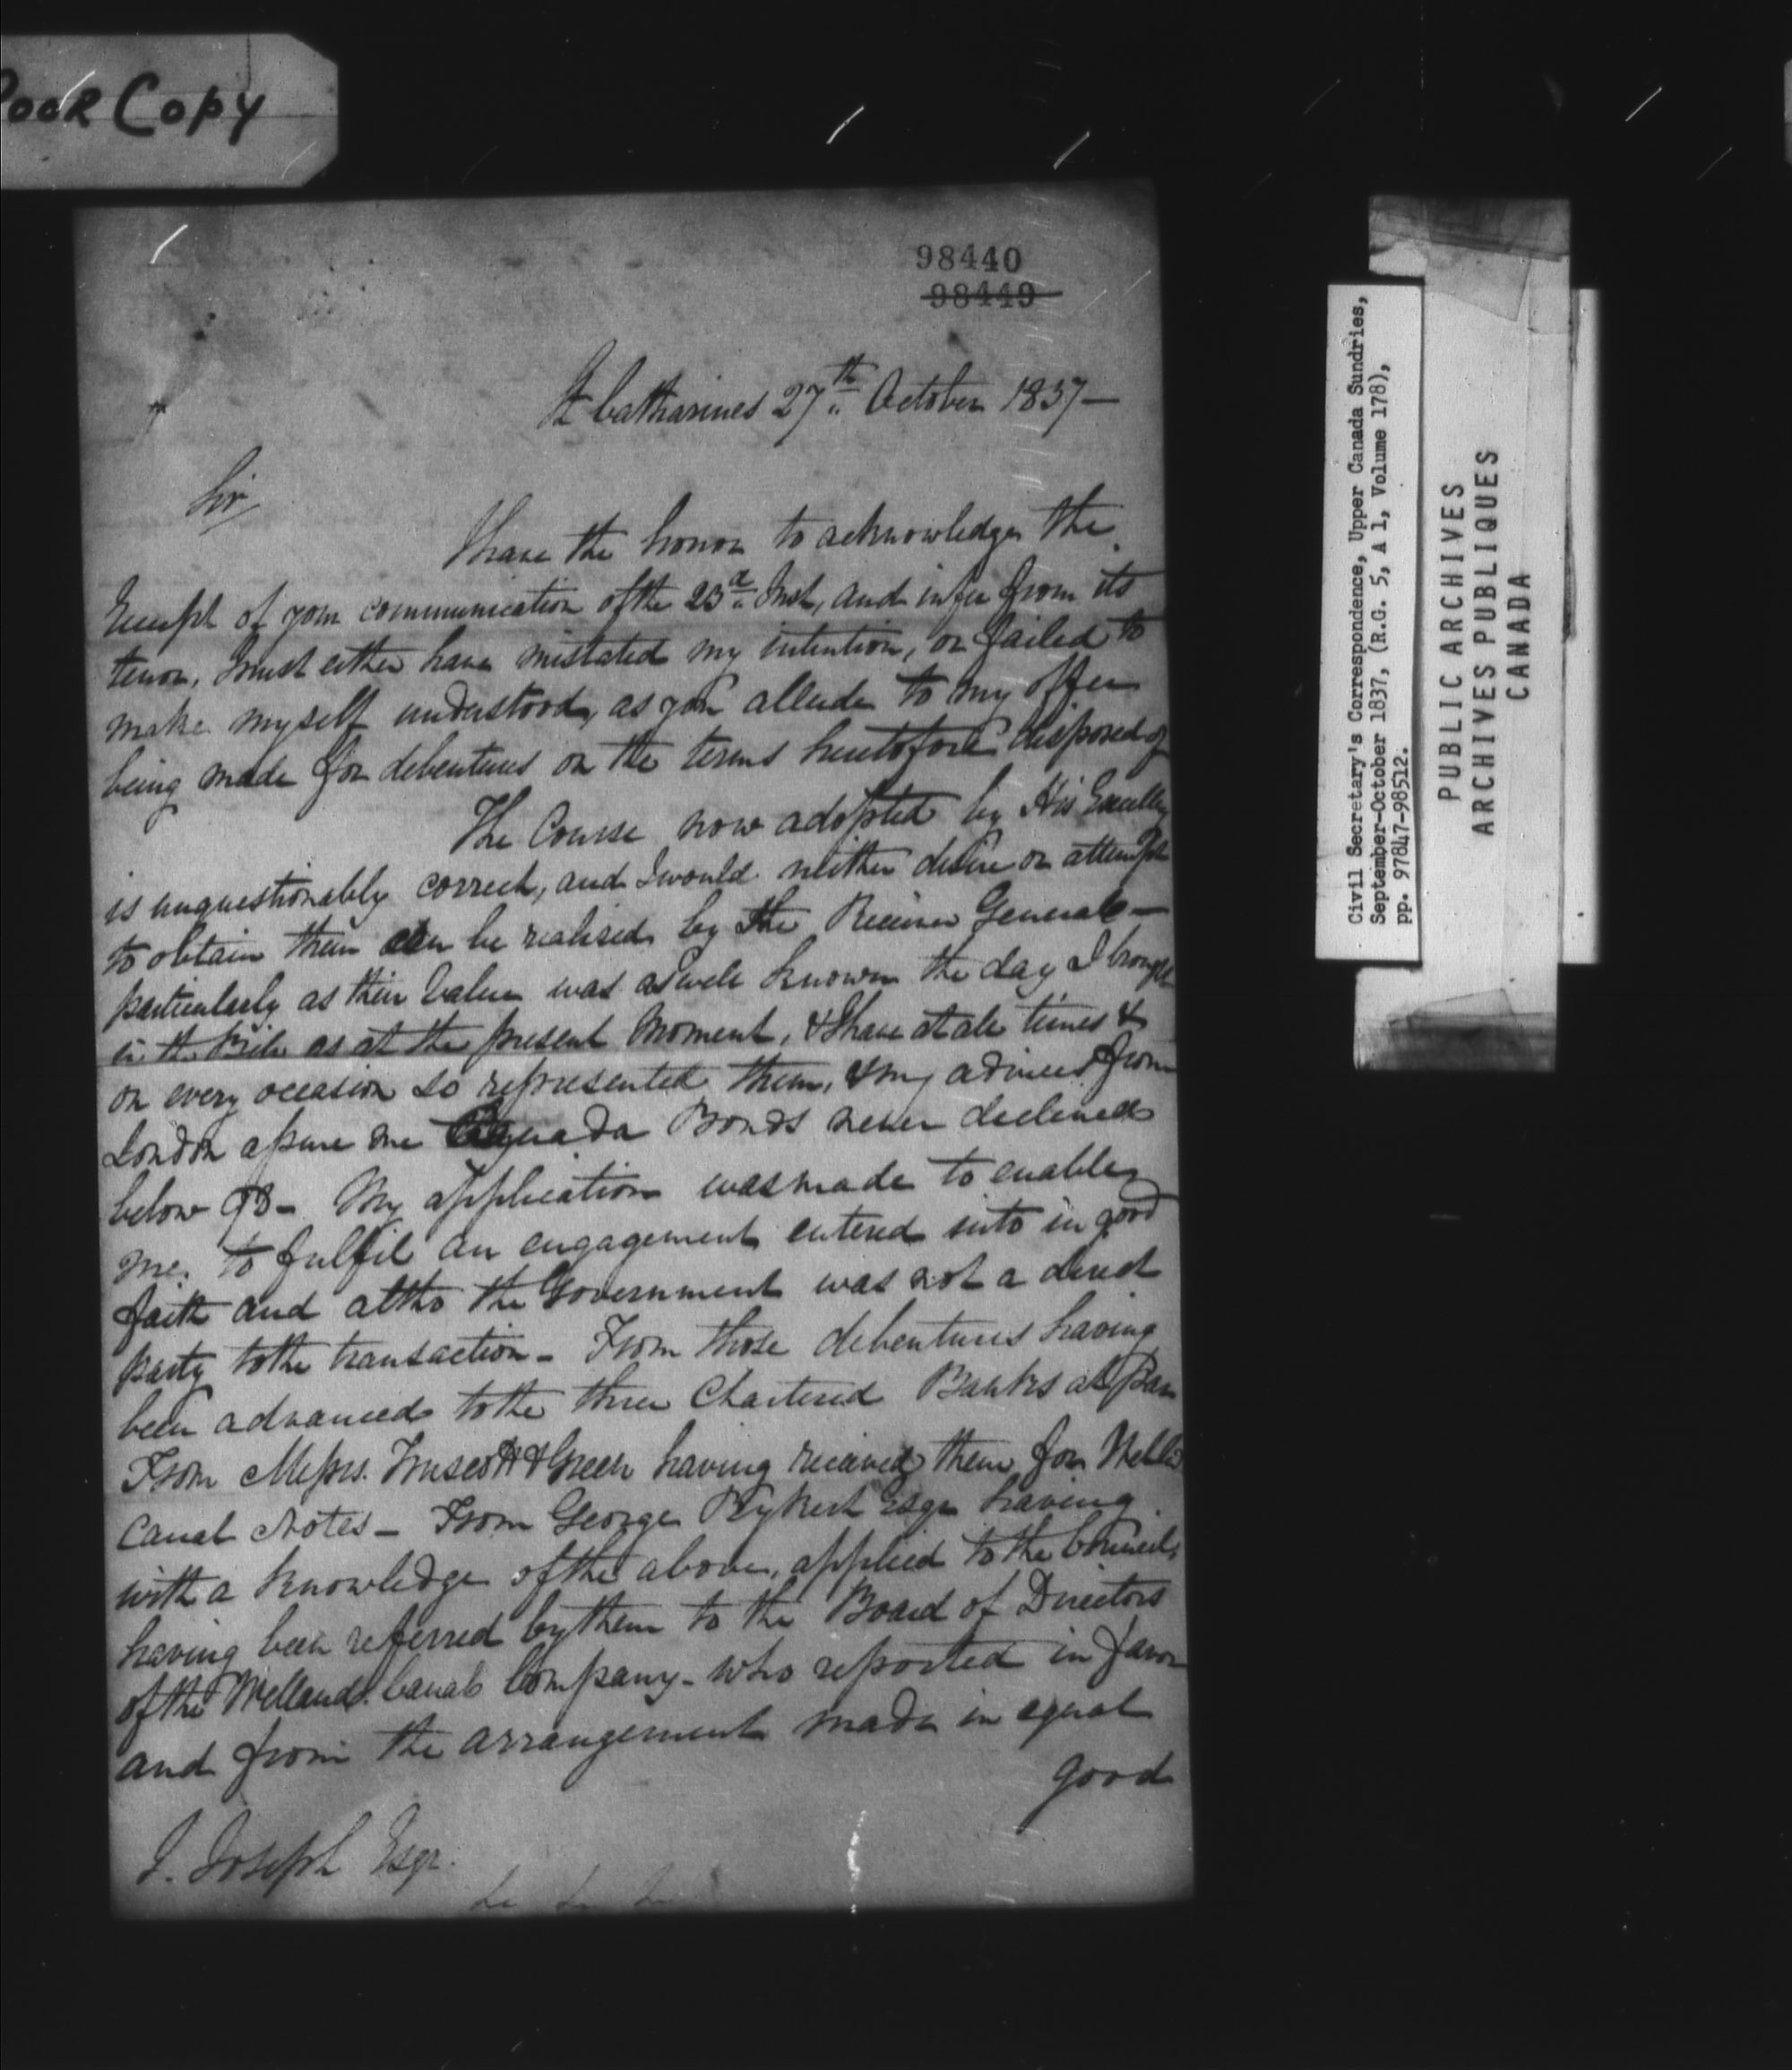 Poor Copy
98440
98449
St Catharines 27th October 1837—
Sir,
I have the honor to acknowledge the
Receipt of your communication of the 23d Inst, and infer from its
tenor, I must either have mistated my intention, or failed to
make myself understood, as you allude to my offer
being made for debentures on the terms heretofore disposed of
The Course now adopted by His Excellcy
is unquestionably correct, and I would neither desire or attempt
to obtain them can be realised by the Receiver General—
particularly as their Value was as well known the day I brought
in the Bill as at the present Moment, & I have at all times &
on every occasion so represented them, & my advices from
London assure me Canada Bonds never declined
below 93- My application was made to enable
me to fulfil an engagement entered into in good
faith and altho the Government was not a direct
party to the transaction- From those debentures having
been advanced to the three Chartered Banks at par
From Messrs. Truscott & Green having received them for
Canal Notes- From George Rykert Esqr having
with a knowledge of the above, applied to the Council,
having been referred by them to the Board of Directors
of the Welland Canal Company- who reported in favor
and from the arrangement made in equal
good
J. Joseph Esqr.
Civil Secretary's Correspondence, Upper Canada Sundries,
September-October 1837, (R.G. 5, A 1, Volume 178),
pp. 97847-98512.
PUBLIC ARCHIVES
ARCHIVES PUBLIQUES
CANADA